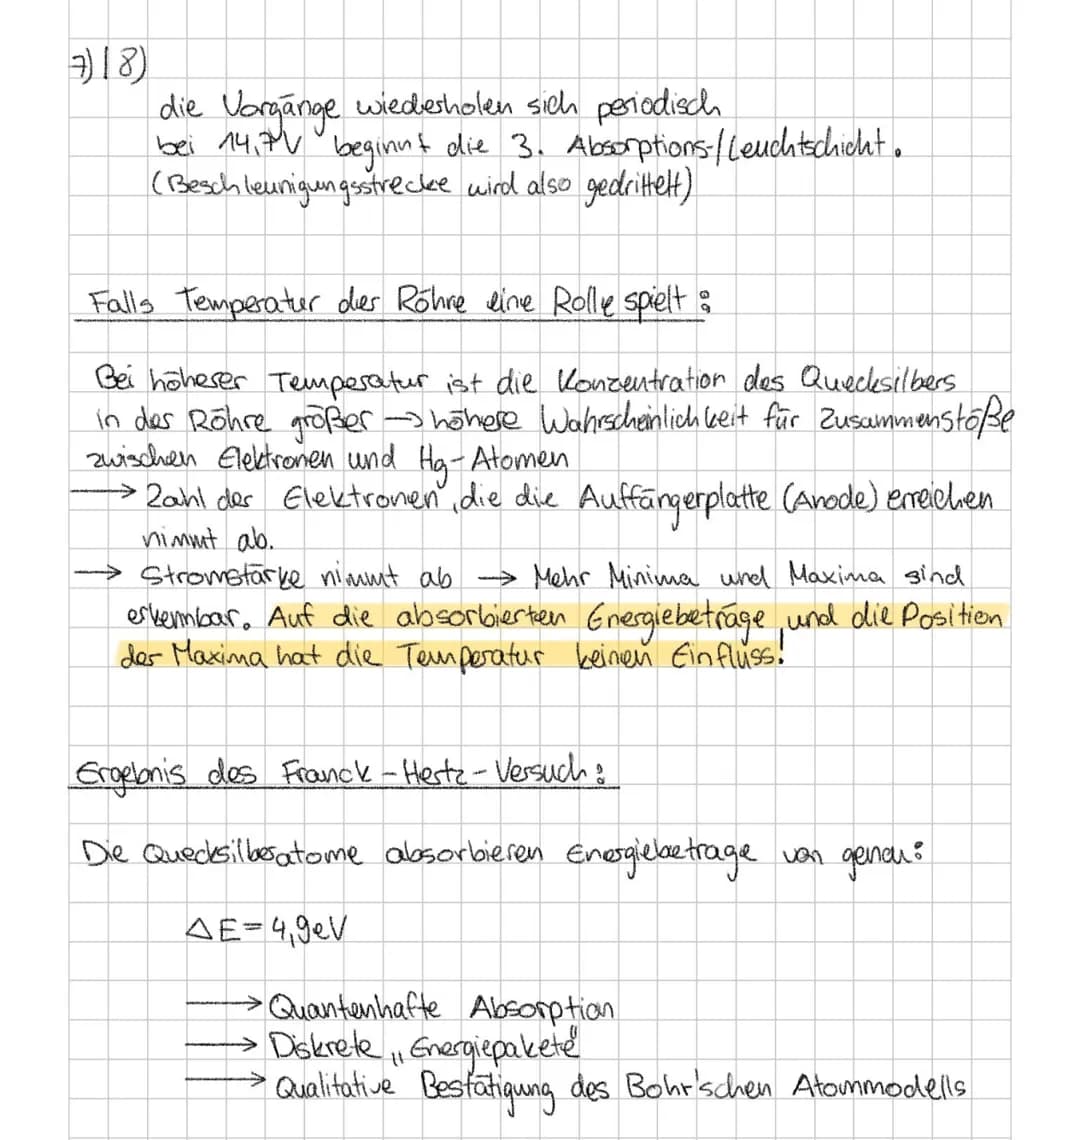 7)18)
die Vorgänge wiederholen sich periodisch
bei 14,7V beginnt die 3. Absorptions-/Leuchtschicht.
(Beschleunigungsstrecke wird also gedrittelt)
Falls Temperatur der Röhre eine Rolle spielt:
Bei höherer Temperatur ist die Konzentration des Quecksilbers
in der Röhre größer → höhere Wahrscheinlichkeit für Zusammenstöße
zwischen Elektronen und Hg-Atomen
→ Zahl der Elektronen, die die Auffängerplatte (Anode) erreichen
nimmt ab.
→ Stromstärke nimmt ab → Mehr Minima und Maxima sind
erkennbar. Auf die absorbierten Energiebeträge und die Position
der Maxima hat die Temperatur keinen Einfluss!
Ergebnis des Franck-Hertz-Versuch:
Die Quecksilberatome absorbieren Energiebetrage von genau:
ΔE=4,9eV
→ Quantenhafte Absorption
→ Diskrete „Energiepakete"
→ Qualitative Bestätigung des Bohr'schen Atommodells